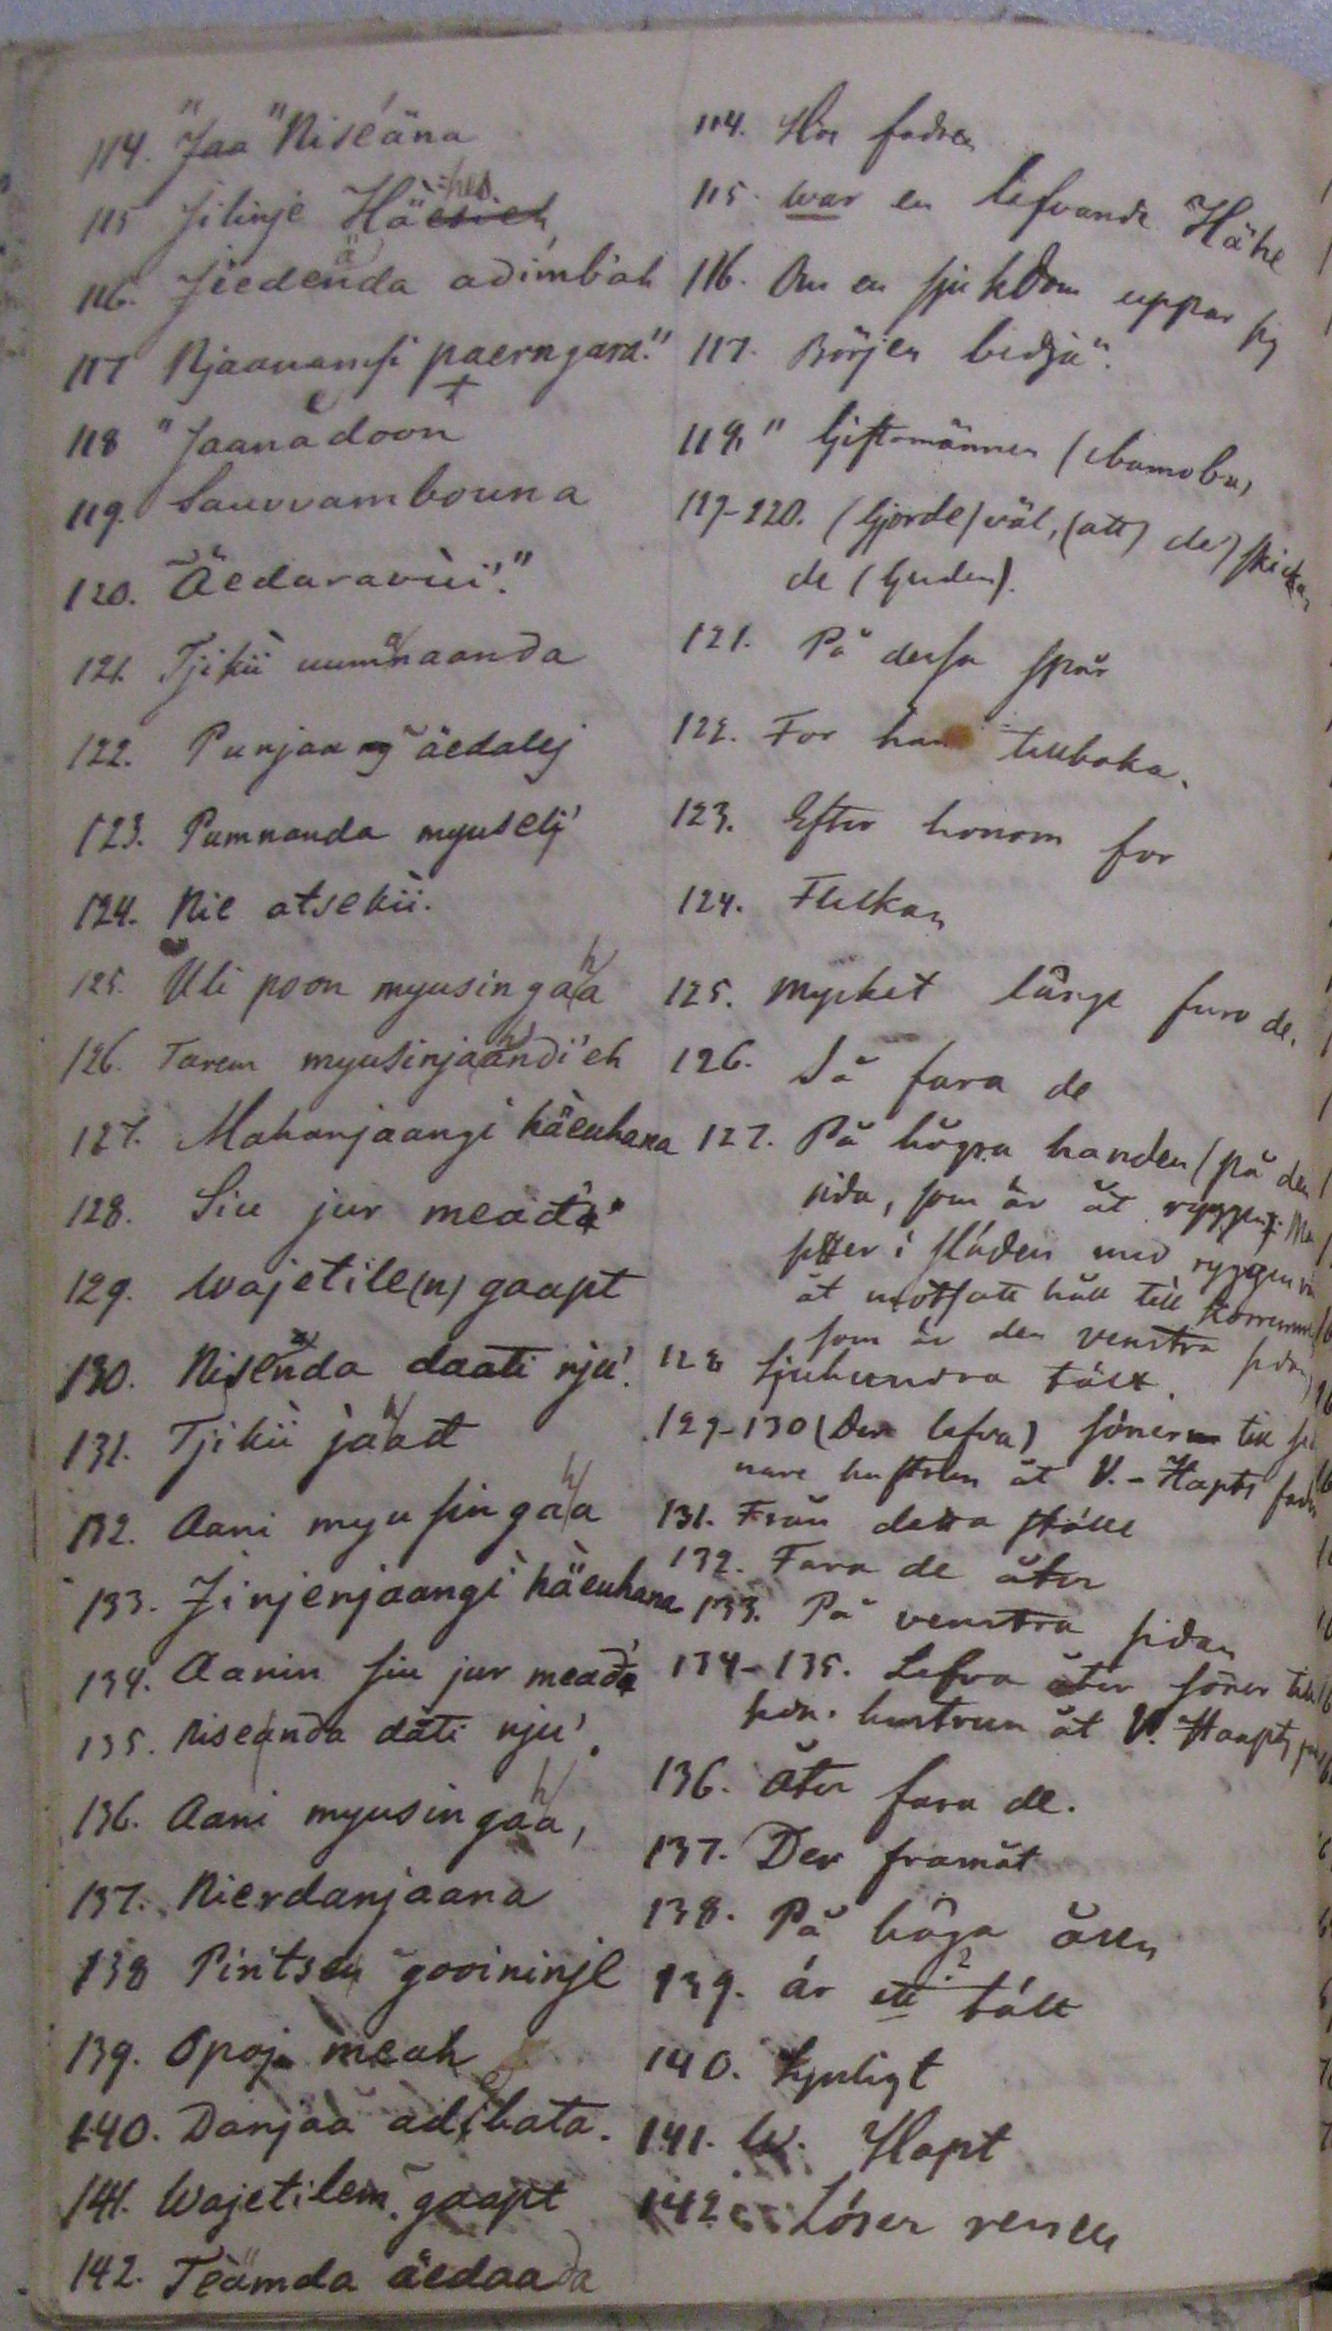 114. "Jaa" Niseäna
115 Jilinje Häesieh =hes
116. Jeedenda adimbah
117 Njaanamsi paerngara."
118 "Jaanadoon
119. Sauvvambouna
120. Äedaravüi."
121. Tjikii uumnaanda
122. Punjaang äedalej
123. Pumnanda myuselj'
124. Nie atsekii.
125. Uli poon myusingaha
126. Tarem myusinjaandi'eh
127. Mahanjaangi häeuhana
128. Siu jur meada"
129. Wajetile(n) gaapt
130. Nisenda daati nju'.
131. Tjikii jaad
132. Aani myusingaha
133. Jinjenjaangi häeuhana
134. Aanin siu jur meada
135. Niseanda dati nju'.
136. Aani myusingaha,
137. Nierdanjaana
138 Pirits gooininje
139. Opoj meah
140. Danjaa adibata.
141. Wajetilem. gaapt
142. Teämda äedaada
114. Hos fadren
115. War en lefvande Hähe
116. Om en sjukdom uppar sig
117. Börjen bedja".
118. " Giftomännen
119-120. (Gjorde) väl, (att) de) skicka
de (Guden).
121. På dessa spår
122. For han tillbaka.
123. Efter honom for
124. Flickan
125. Mycket länge furo de.
126. Så fara de
127. På högra handen (på den
sida, som är åt ryggen.
sitter i släden med ryggen
åt motsatt håll till
som är den venstra sidan)
128 Sjuhundra tält.
129-130 (Der lefva) söner till
nare hustrun åt V.-Hapts
131. Från detta ställe
132. Fara de åter
133. På venstra sidan
134-135. Lefva åter söner till
hustrun åt V. Haapts
136. Åter fara de.
137. Der framåt
138. På höga åsen
139. är ett tält ?
140. Synligt
141. W. Hapt
142. Löser renen